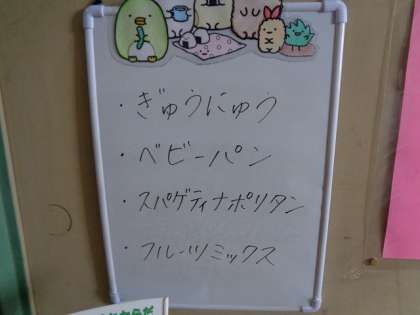 ・ぎゅうにゅう
・ベビーパン
・スパゲティナポリタン
・フルーツミックス